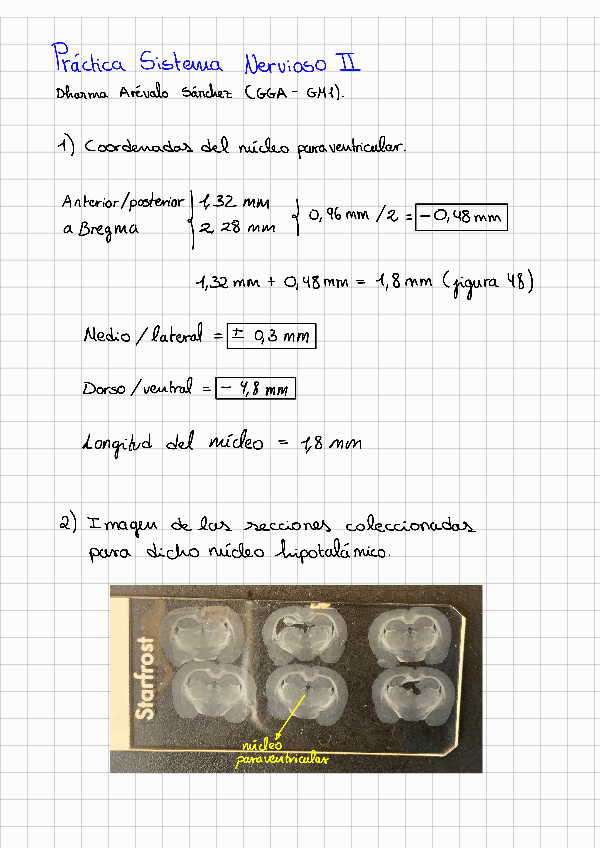 Práctica Sistema Nervioso II
Dharma Arévalo Sánchez (GGA - GM1).
1) Coordenadas del núcleo paraventricular.
Anterior/posterior 1,32 mm
a Bregma 2,28 mm
0,96 mm /2 = -0,48 mm
1,32 mm + 0,48 mm = 1,8 mm (figura 48)
Medio / lateral = ± 0,3 mm
Dorso / ventral = - 4,8 mm
Longitud del núcleo = 1,8 mm
2) Imagen de las secciones coleccionadas
para dicho núcleo hipotalámico.
Starfrost
núcleo
paraventricular